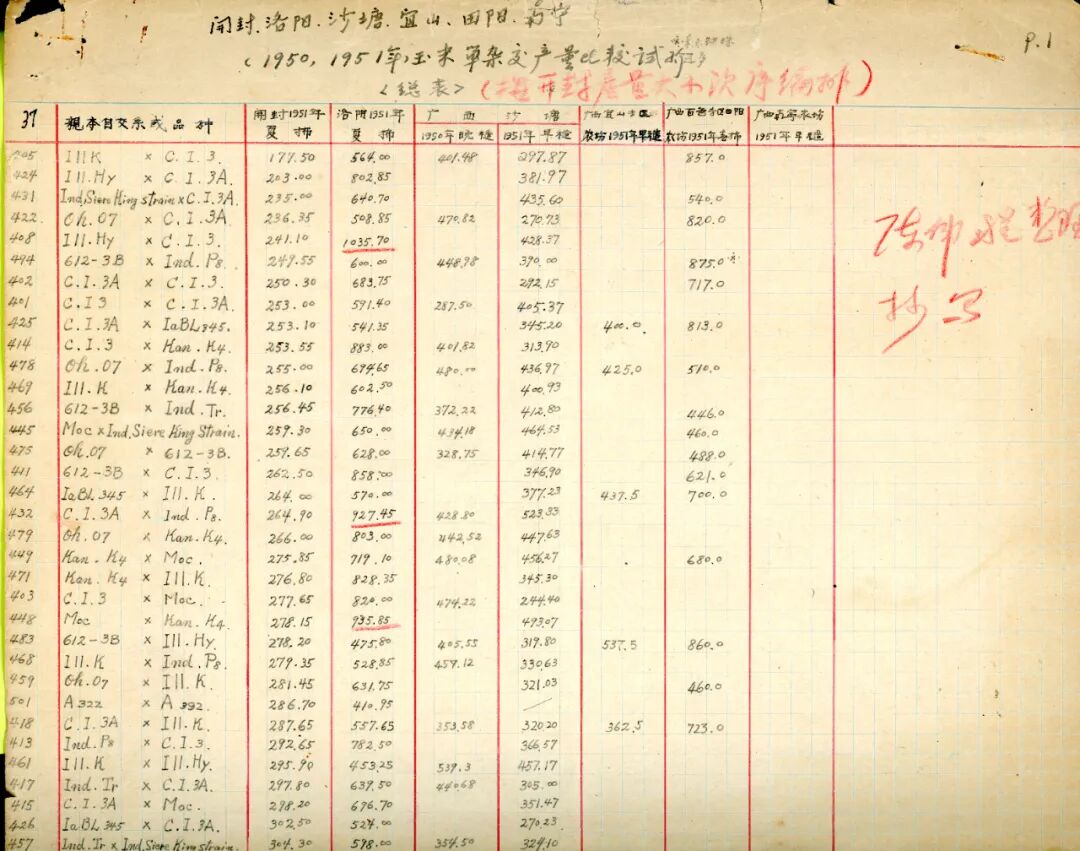 開封.洛阳.沙塘.宜山.田阳.
(1950, 1951年)玉米單杂交产量比较试
P.1
<总表> (按开封产量大小次序编排)
37 親本自交系或品种 開封1951年夏播 洛阳1951年夏播 广西沙塘 1950年晚植 1951年早植 广西宜山 农坊1951年早植 广西百色 田阳农坊1951年春播 农坊1951年早植
405 Ill.K × C.I.3. 177.50 564.00 401.48 297.87 857.0
424 Ill.Hy × C.I.3A. 203.00 802.85 381.97
431 Ind.Siere King strain × C.I.3A. 235.00 640.70 435.60 540.0
422 Oh.07 × C.I.3A. 236.35 508.85 470.82 270.73 820.0
408 Ill.Hy × C.I.3. 241.10 1035.70 428.37
494 612-3B × Ind.P8. 249.55 600.00 448.98 390.00 875.0
402 C.I.3A × C.I.3. 250.30 683.75 292.15 717.0
401 C.I3 × C.I.3A. 253.00 591.40 287.50 405.37
425 C.I.3A × IaBL345. 253.10 541.35 345.20 400.0. 813.0
414 C.I.3 × Kan.K4. 253.55 883.00 401.82 313.90
478 Oh.07 × Ind.P8. 255.00 694.65 480.00 436.97 425.0 510.0
469 Ill.K × Kan.K4. 256.10 602.50 400.93
456 612-3B × Ind.Tr. 256.45 776.40 372.22 412.80 446.0
445 Moc × Ind.Siere King Strain. 259.30 650.00 434.18 464.53 460.0
475 Oh.07 × 612-3B. 259.65 628.00 328.75 414.77 488.0
411 612-3B × C.I.3. 262.50 858.00 346.90 621.0
464 IaBL345 × Ill.K. 264.00 570.00 377.23 437.5 700.0
432 C.I.3A × Ind.P8. 264.90 927.45 428.80 523.33
479 Oh.07 × Kan.K4. 266.00 803.00 442.52 447.63
449 Kan.K4 × Moc. 275.85 719.10 480.08 456.27 680.0
471 Kan.K4 × Ill.K 276.80 828.35 345.30
403 C.I.3 × Moc. 277.65 820.00 474.22 244.40
448 Moc × Kan.K4. 278.15 935.85 493.07
483 612-3B × Ill.Hy. 278.20 475.80 405.55 319.80 537.5 860.0
468 Ill.K × Ind.P8. 279.35 528.85 459.12 330.63
459 Oh.07 × Ill.K. 281.45 631.75 321.03 460.0
501 A322 × A392. 286.70 410.95 /
418 C.I.3A × Ill.K. 287.65 557.65 353.58 320.20 362.5 723.0
413 Ind.P8 × C.I.3. 292.65 782.50 366.57
461 Ill.K × Ill.Hy. 295.90 453.25 539.3 457.17
417 Ind.Tr × C.I.3A. 297.80 639.50 440.68 305.00
415 C.I.3A × Moc. 298.20 696.70 351.47
426 IaBL345 × C.I.3A. 302.50 524.00 270.23
457 Ind.Tr × Ind.Siere King strain. 304.30 598.00 354.50 324.10
抄写